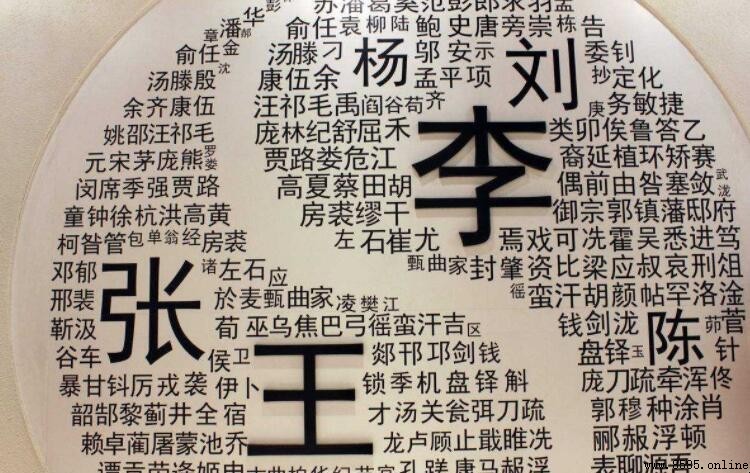 彭
苏潘葛奚范彭郎
华
潘
郝
俞任袁柳陆鲍史唐
旁崇
栋
告
章
俞任
金
汤滕刁
杨
邬安示
刘
委钊
沈
汤滕殷
康伍余
孟平项
抄定化
余齐康伍
汪祁毛禹阎谷荀齐
庚务敏捷
李
姚邵汪祁毛
庞林纪舒屈禾
类卯俟鲁答乙
元宋茅庞熊
罗
娄
贾路娄危江
裔延植环矫赛
闵席季强贾路
高夏蔡田胡
偶前由咎塞敛
武
泷
童钟徐杭洪高黄
房裘缪干
御宗郭镇藩邸府
柯昝管包单翁经房裘
左石崔尤
焉戏可冼霍吴悉进笃
邓郁
张
诸左石应
甄曲家封肇资比梁应叔哀刑俎
邢裴
於麦甄曲家凌樊江
徭蛮汗胡颜帖罕洛淦
靳汲
荀巫乌焦巴弓徭蛮汗吉区
钱剑泷
陈
茆
菅
谷车
侯卫
王
郯邗邛剑钱
盘铎
玉
针
暴甘钭厉戎袭伊卜
锁季机盘铎斛
庞刀疏牵浑佟
韶郜黎蓟井全宿
才汤关瓮弭刀疏
郭穆种涂肖
赖卓蔺屠蒙池乔
龙卢顾止戢睢冼
郦郝浮顿
谭贡劳逄姬申
孔踩唐马郝浮
www.9595.online